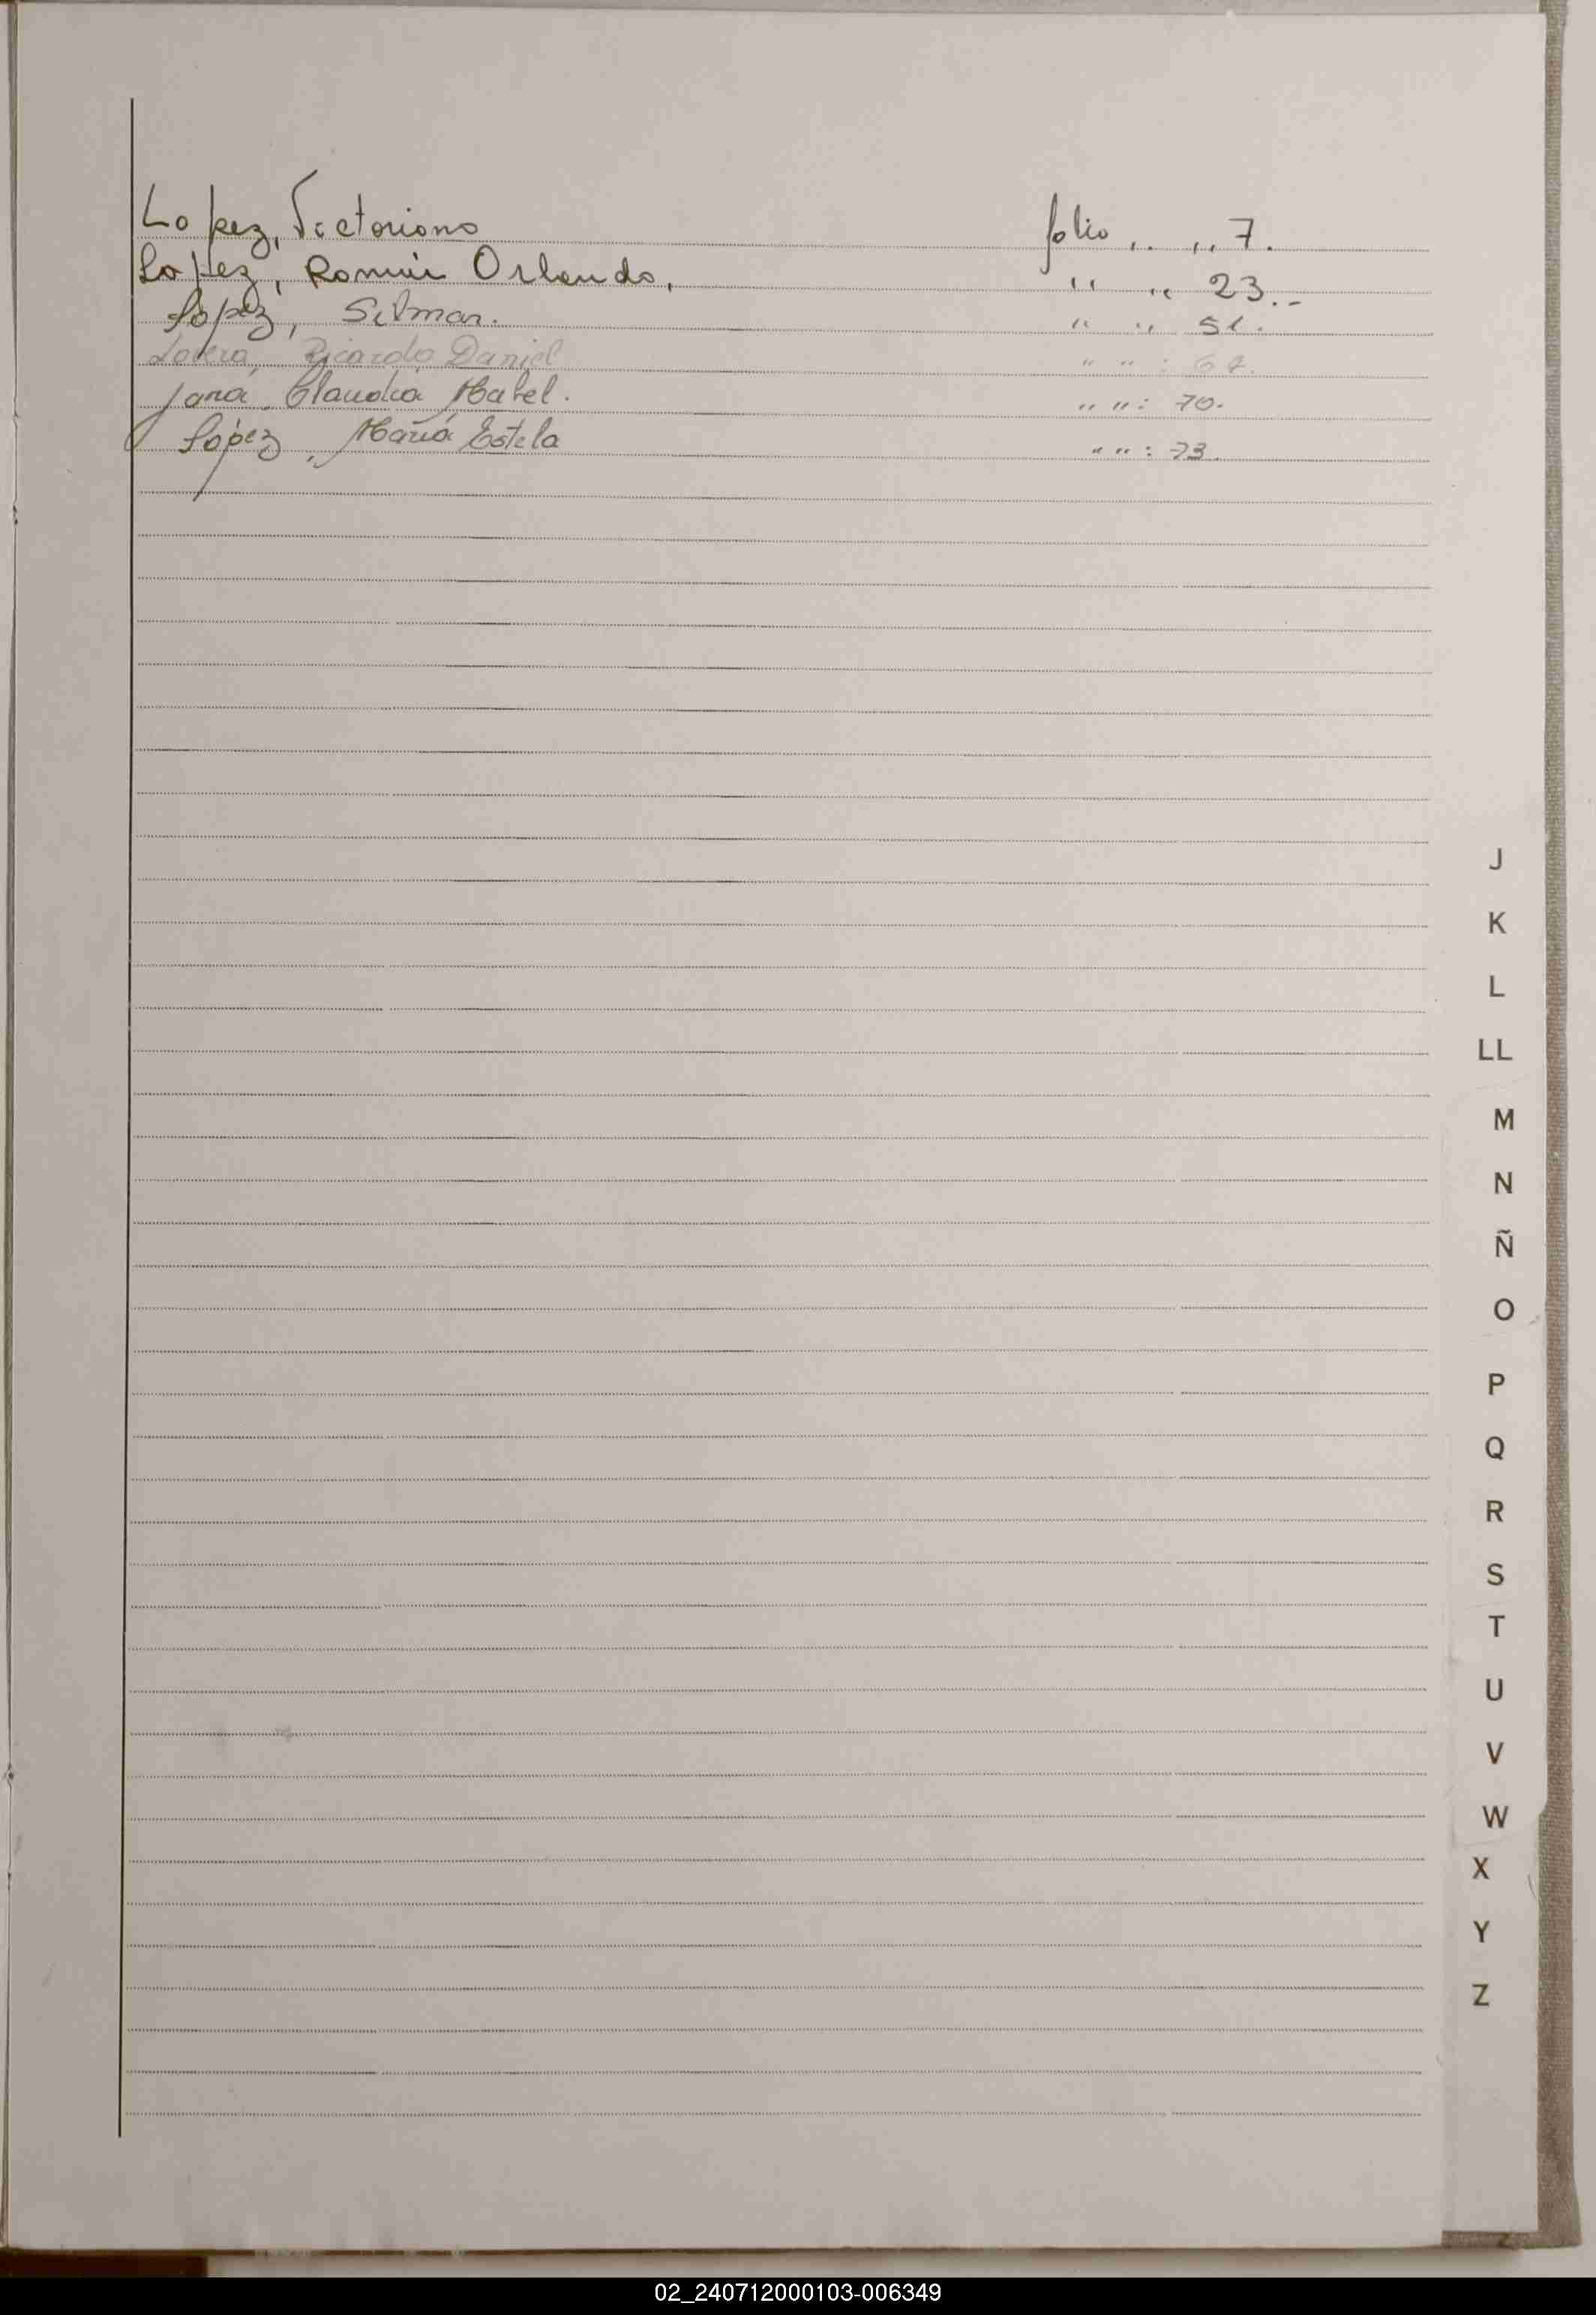 Lopez, Victoriano folio ,, ,, 7.
Lopez, Román Orlando, " " 23.-
López, Silmar. " " 51.
Lovera, Ricardo Daniel " " : 67.
Jara, Claudia Mabel. " " : 70.
López, María Estela " " : 73.
J
K
L
LL
M
N
Ñ
O
P
Q
R
S
T
U
V
W
X
Y
Z
02_240712000103-006349